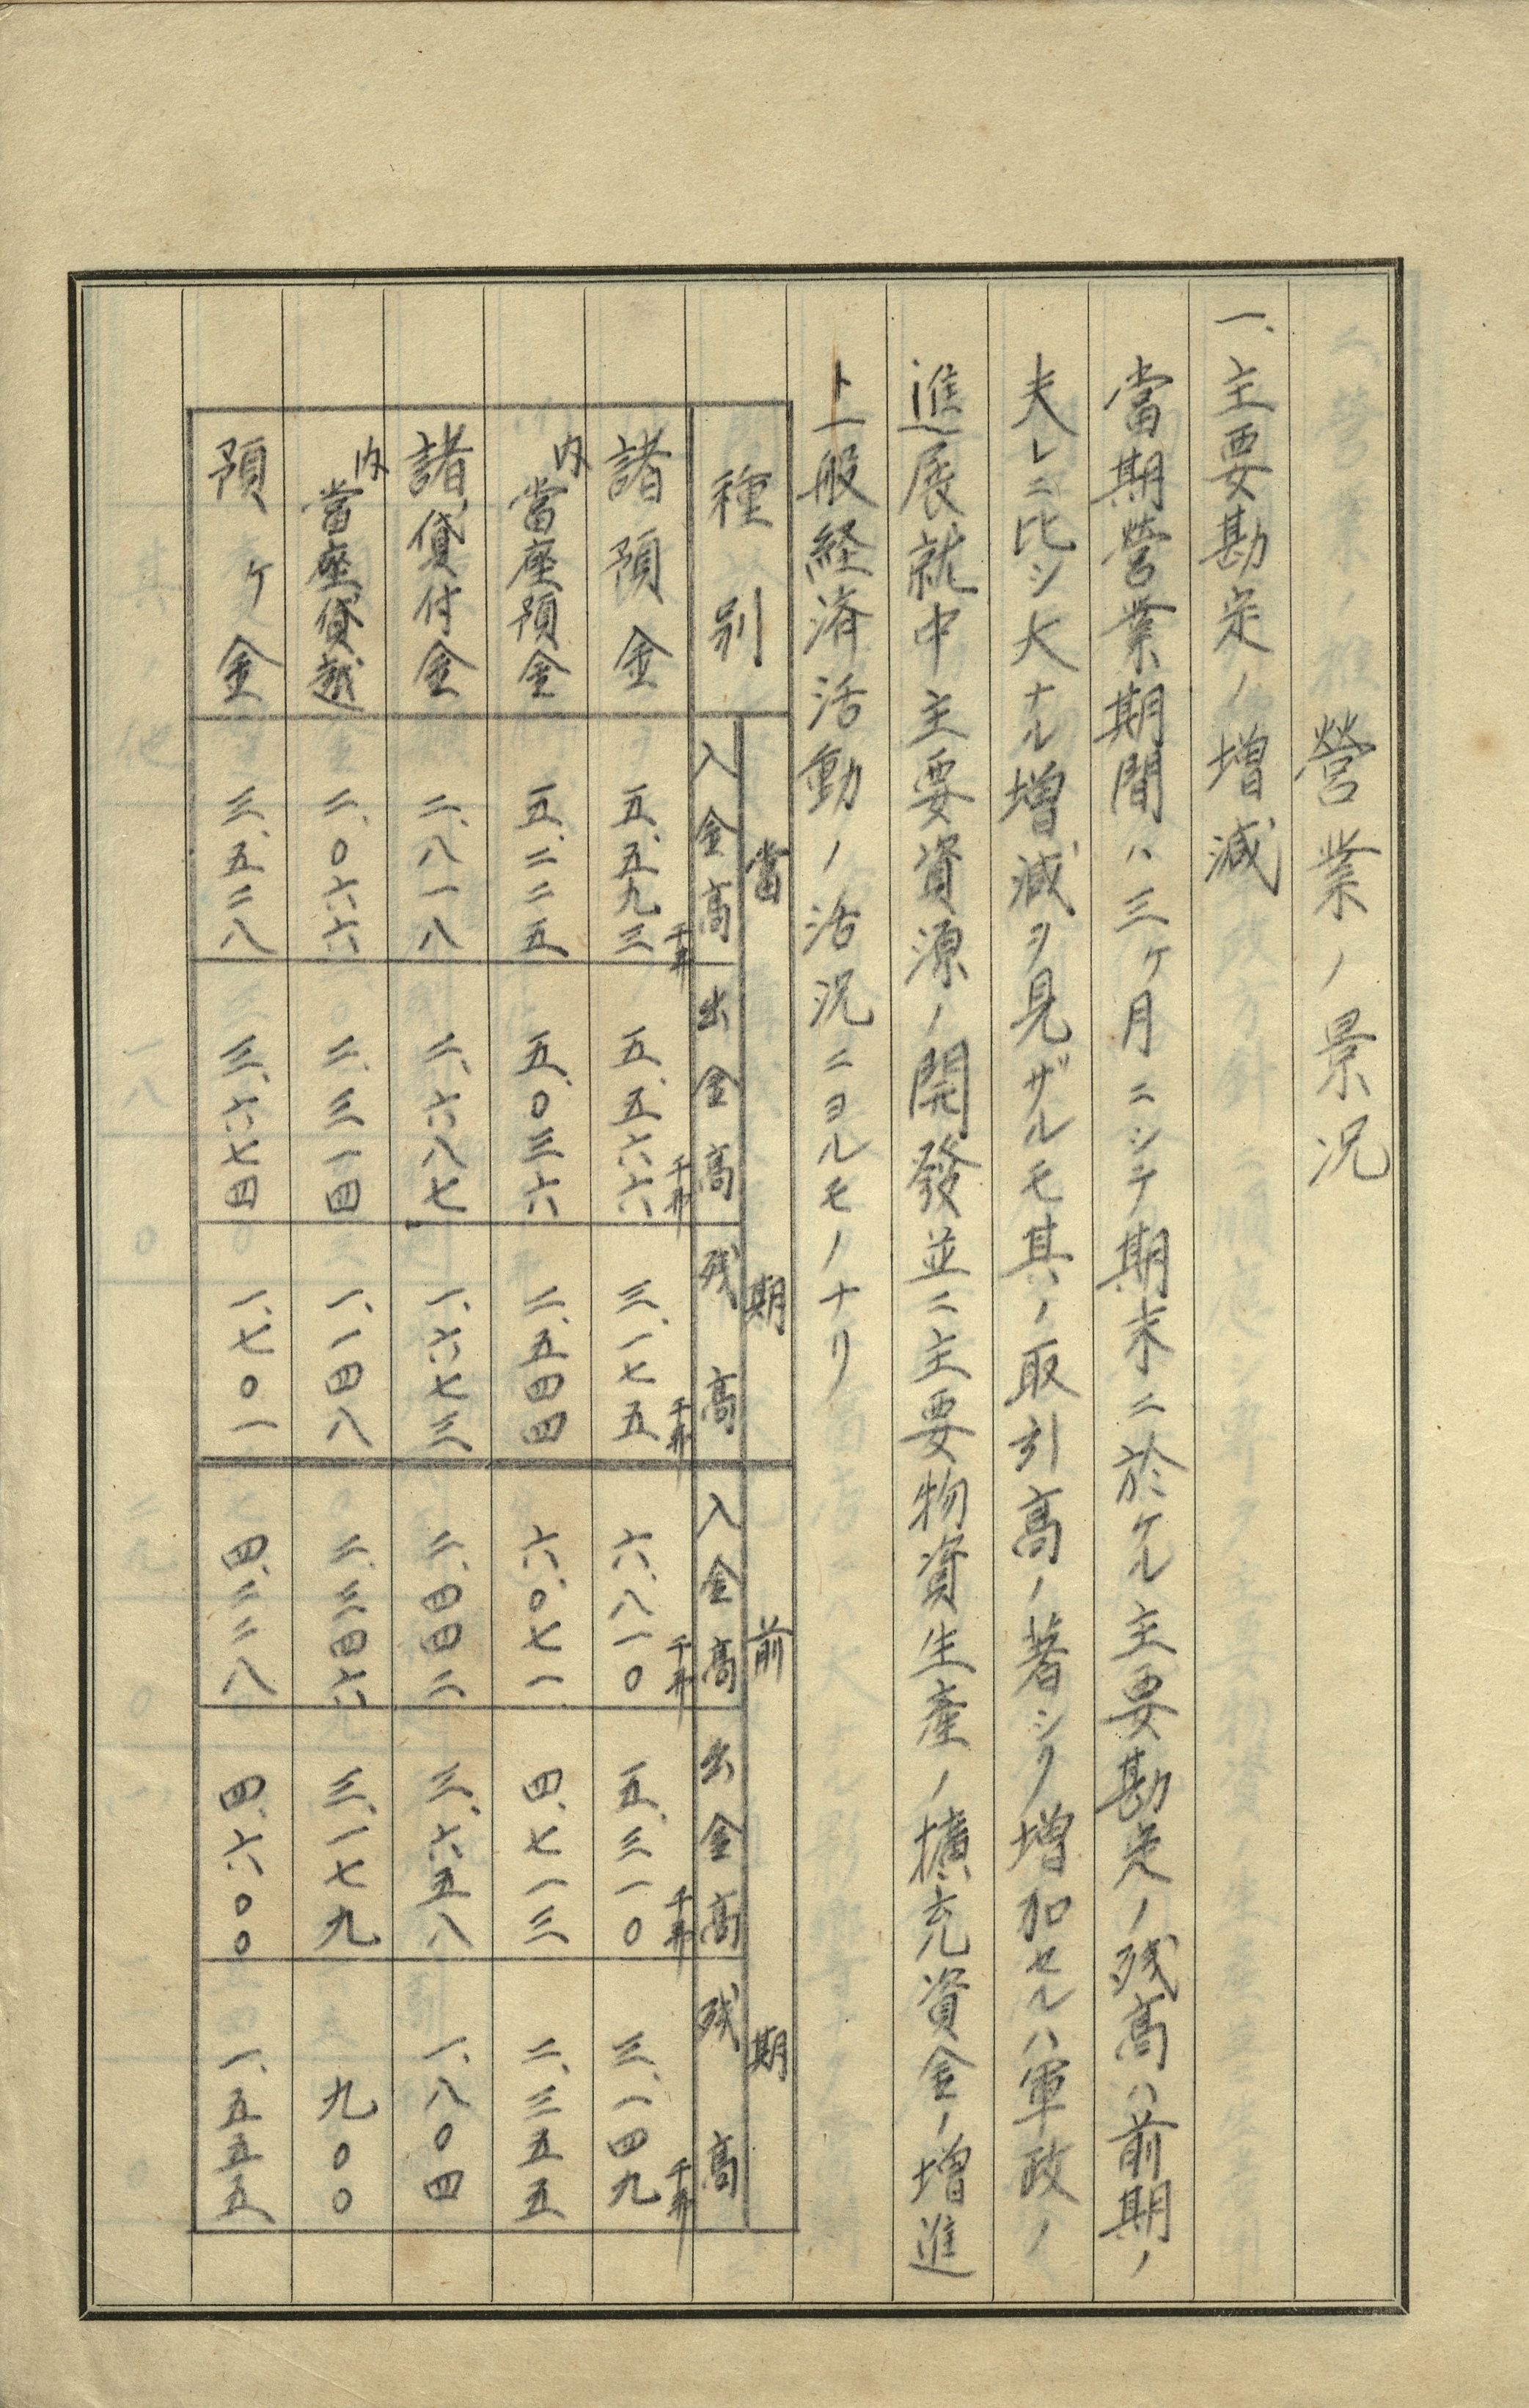 營業ノ景況
一、主要勘定ノ増減
當期營業期間ハ三ヶ月ニシテ期末ニ於ケル主要勘定ノ残高ハ前期ノ
夫レニ比シ大ナル増減ヲ見ザルモ其ノ取引高ノ著シク増加セルハ軍政ノ
進展就中主要資源ノ開發並ニ主要物資生産ノ擴充資金ノ増進
ト一般経済活動ノ活況ニヨルモノナリ
種別 當期 前期
入金高 出金高 残高 入金高 出金高 残高
諸預金 五、五九三 五、五六六 三、一七五 六、八一〇 五、三一〇 三、一四九
内當座預金 五、二二五 五、〇三六 二、五四四 六、〇七一 四、七一三 二、三五五
諸貸付金 二、八一八 二、六八七 一、六七三 二、四四二 三、六五八 一、八〇四
内當座貸越 二、〇六六 二、三一四 一、一四八 二、三四六 三、一七九 九〇〇
預ケ金 三、五二八 三、六七四 一、七〇一 四、二二八 四、六〇〇 一、五五五